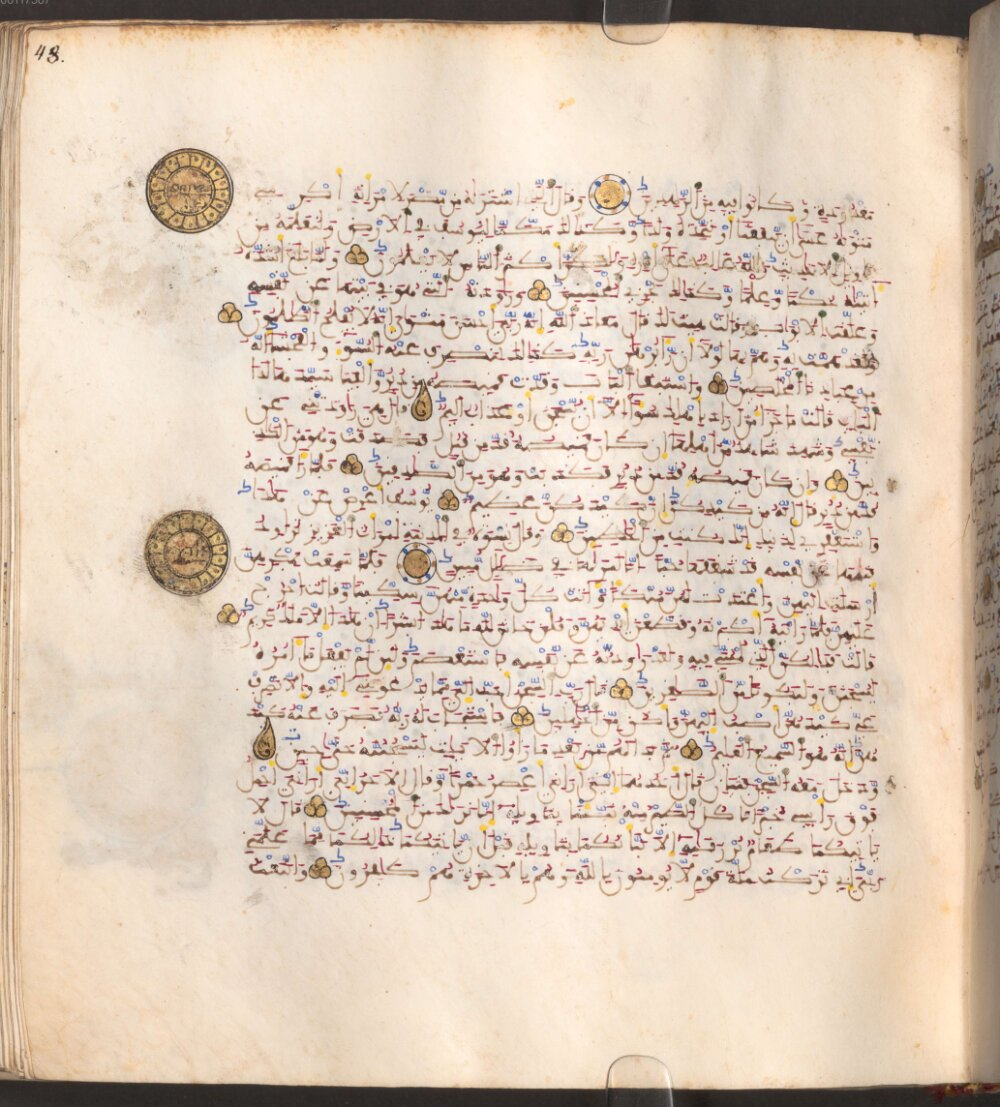 48.
معدودة وكانوا فيه من الزاهدين وقال الذي اشتريه من مصر لامراته اكرمي
مثويه عسى ان ينفعنا او نتخذه ولدا وكذلك مكنا ليوسف في الارض ولنعلمه من
تاويل الاحاديث والله غالب على امره ولكن اكثر الناس لا يعلمون ولما بلغ اشده
اتيناه حكما وعلما وكذلك نجزي المحسنين ورودته التي هو في بيتها عن نفسه
وغلقت الابواب وقالت هيت لك قال معاذ الله انه ربي احسن مثواي انه لا يفلح الظلمون
ولقد همت به وهم بها لولا ان رءا برهن ربه كذلك لنصرف عنه السوء والفحشاء انه
من عبادنا المخلصين واستبقا الباب وقدت قميصه من دبر والفيا سيدها لدا
الباب قالت ما جزاء من اراد باهلك سوءا الا ان يسجن او عذاب اليم قال هي راودتني عن
نفسي وشهد شاهد من اهلها ان كان قميصه قد من قبل فصدقت وهو من الكذ
بين وان كان قميصه قد من دبر فكذبت وهو من الصدقين فلما رءا قميصه
قد من دبر قال انه من كيدكن ان كيدكن عظيم يوسف اعرض عن هذا
واستغفري لذنبك انك كنت من الخطين وقال نسوة في المدينة امرات العزيز ترود
فتيها عن نفسه قد شغفها حبا انا لنريها في ضلل مبين فلما سمعت بمكرهن
ارسلت اليهن واعتدت لهن متكئا واتت كل وحدة منهن سكينا وقالت اخرج
عليهن فلما راينه اكبرنه وقطعن ايديهن وقلن حاش لله ما هذا بشرا ان هذا الا ملك كريم
قالت فذالكن الذي لمتنني فيه ولقد راودته عن نفسه فاستعصم ولئن لم يفعل ما امره
ليسجنن وليكونا من الصغرين قال رب السجن احب الي مما يدعونني اليه والا تصرف
عني كيدهن اصب اليهن واكن من الجهلين فاستجاب له ربه فصرف عنه كيد
هن انه هو السميع العليم ثم بدا لهم من بعد ما راوا الايت ليسجننه حتى حين
ودخل معه السجن فتيان قال احدهما اني اراني اعصر خمرا وقال الاخر اني اراني احمل
فوق راسي خبزا تاكل الطير منه نبئنا بتاويله انا نريك من المحسنين قال لا
ياتيكما طعام ترزقانه الا نباتكما بتاويله قبل ان ياتيكما ذالكما مما علمني
ربي اني تركت ملة قوم لا يومنون بالله وهم بالاخرة هم كافرون واتبعت